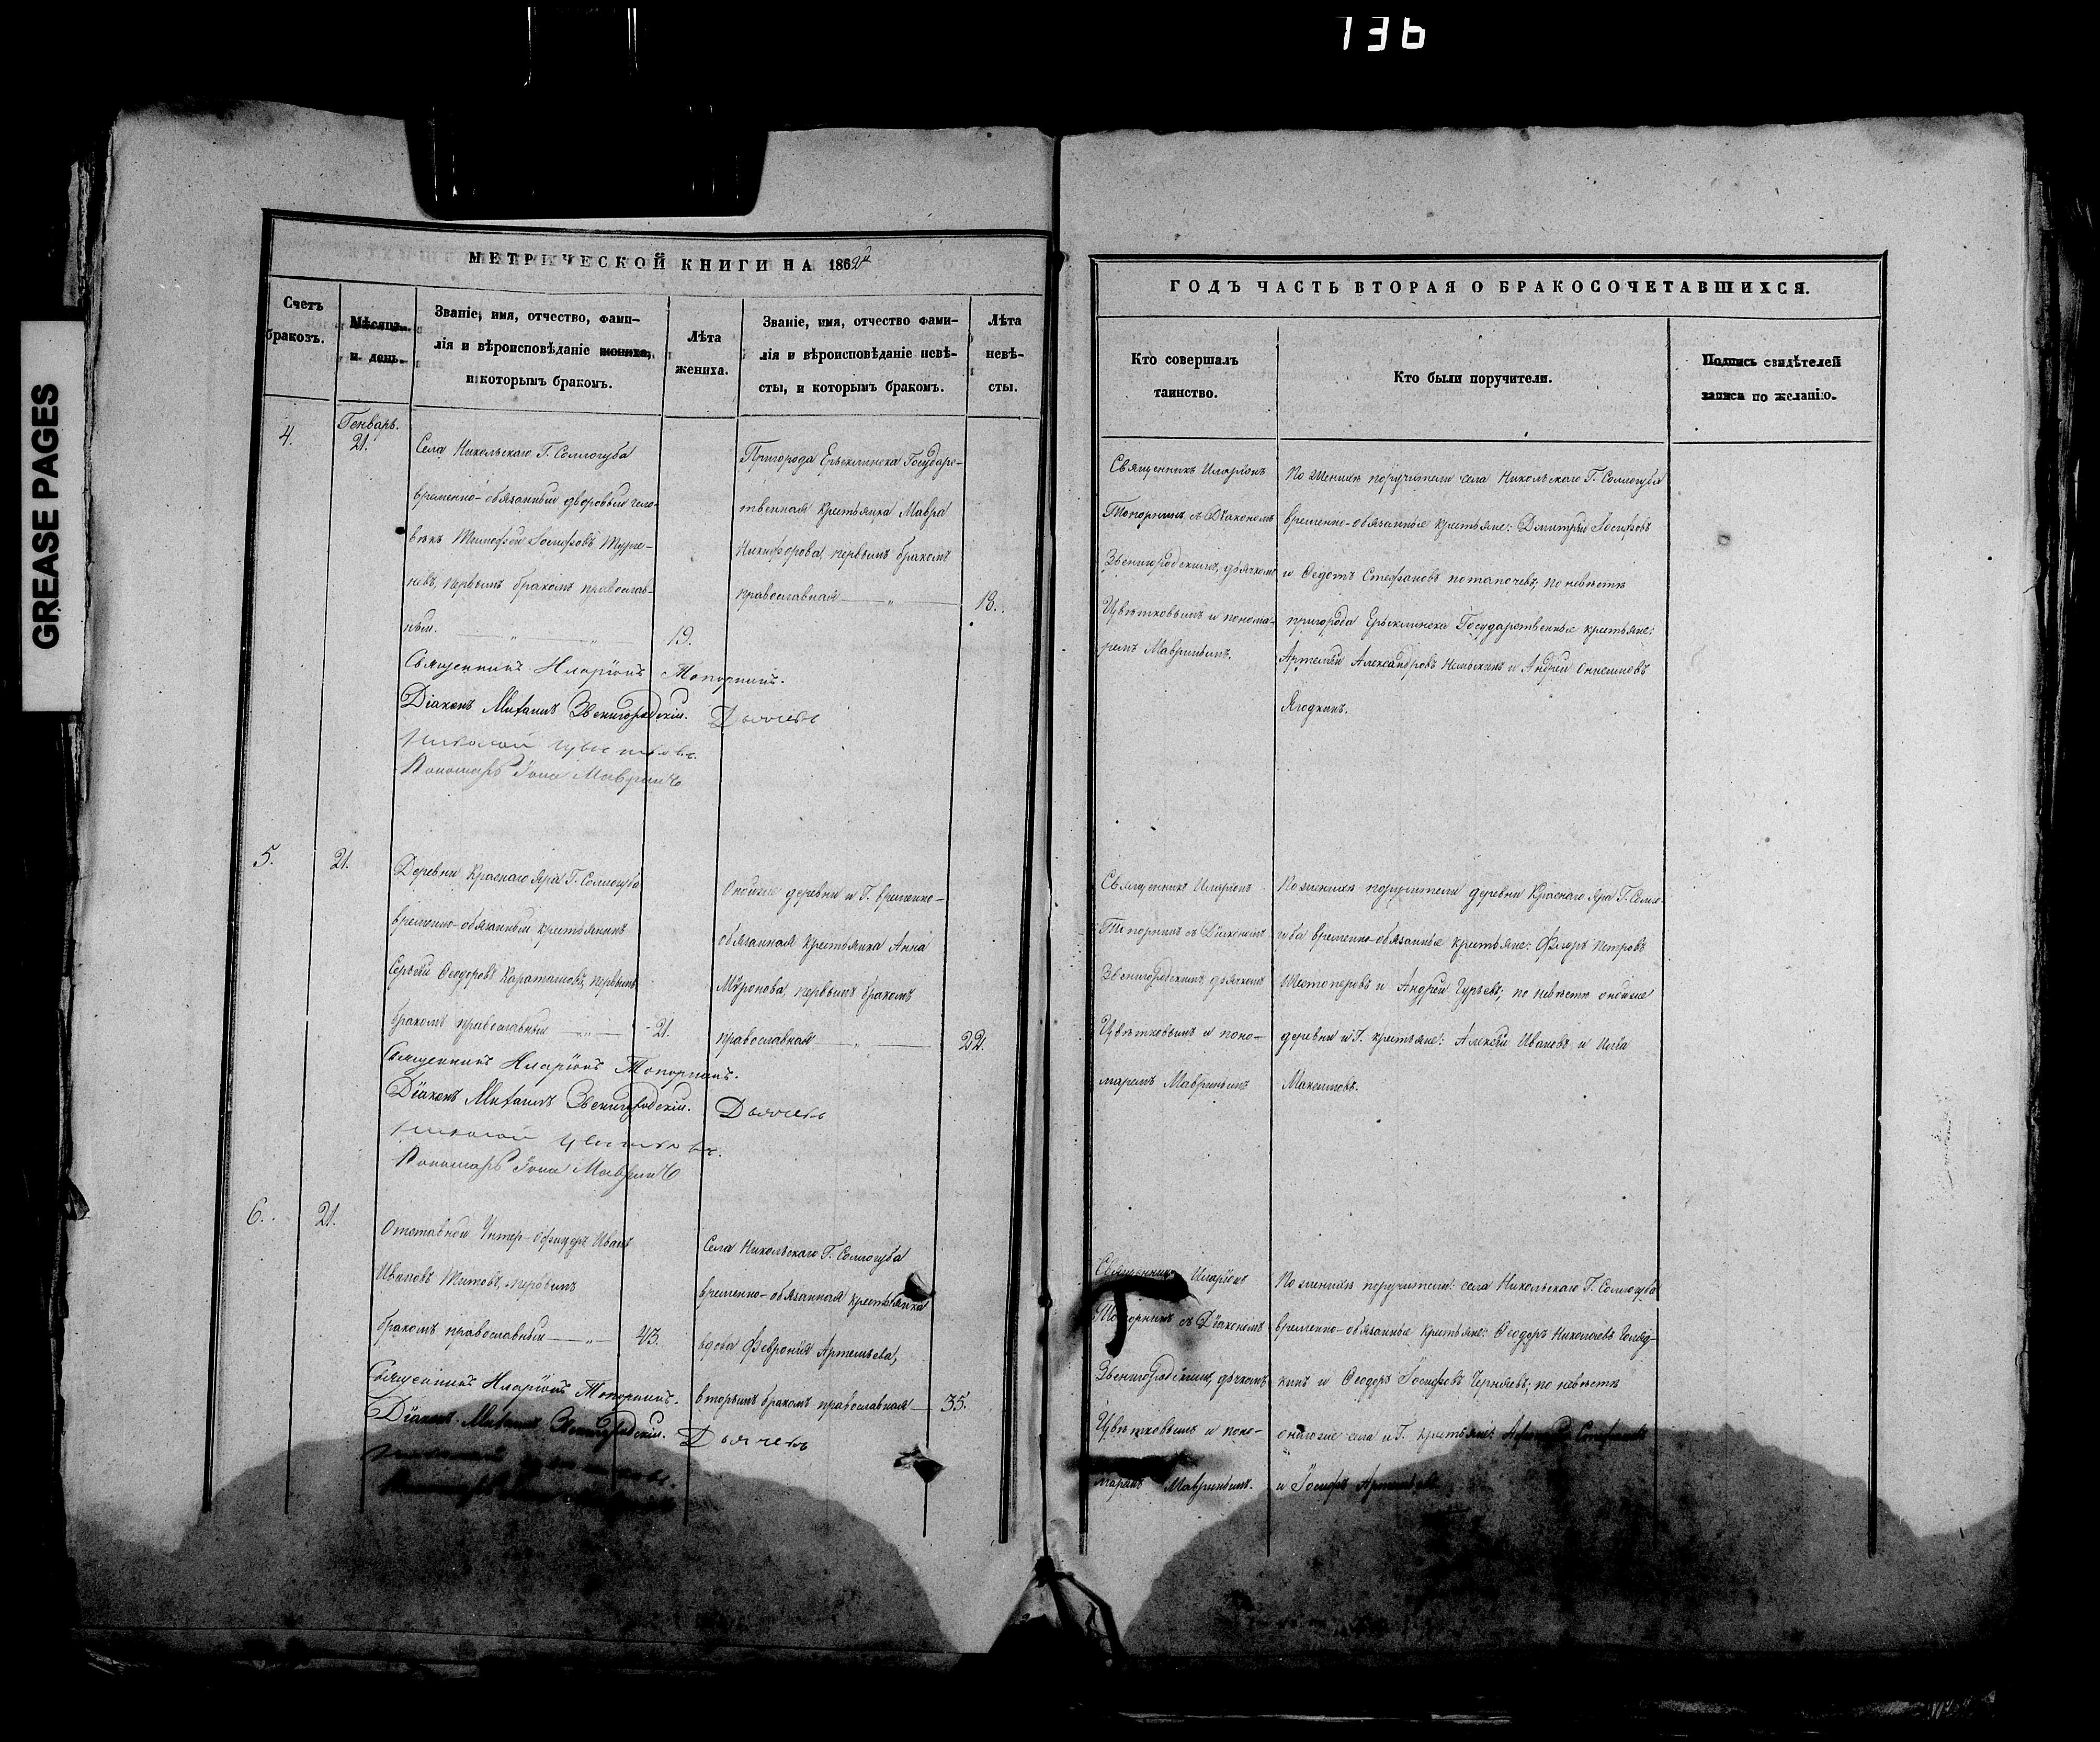 136
GREASE PAGES
МЕТРИЧЕСКОЙ КНИГИ НА 1862й
Счетъ браковъ.
Мѣсяцъ и день.
Званіе, имя, отчество, фами-
лія и вѣроисповѣданіе жениха,
и которымъ бракомъ.
Лѣта
жениха.
Званіе, имя, отчество фами-
лія и вѣроисповѣданіе невѣ-
сты, и которымъ бракомъ.
Лѣта
невѣ-
сты.
4.
Генварь.
21.
Села Никольскаго Г. Соллогуба
временно-обязанный дворовый чело-
вѣкъ Тимофей Іосифовъ Турге-
невъ, первымъ бракомъ православ-
ный.
19.
Пригорода Ерыклинска Государс-
твенная крестьянка Мавра
Никифорова, первымъ бракомъ
православная
18.
Священникъ Иларіонъ Топорнинъ.
Діаконъ Михаилъ Звенигородскій. Дьячекъ
Николай Цвѣтковъ.
Пономарь Іона Мавринъ
5.
21.
Деревни Краснаго Яра Г. Соллогуба
временно-обязанный крестьянинъ
Сергѣй Ѳеодоровъ Караташовъ, первымъ
бракомъ православный
21.
Оной же деревни и Г. временно-
обязанная крестьянка Анна
Мѵронова, первымъ бракомъ
православная
22.
Священникъ Иларіонъ Топорнинъ.
Діаконъ Михаилъ Звенигородскій. Дьячекъ
Николай Цвѣтковъ.
Пономарь Іона Мавринъ
6.
21.
Отставной Унтер-Офицеръ Иванъ
Ивановъ Титовъ, первымъ
бракомъ православный
43.
Села Никольскаго Г. Соллогуба
временно-обязанная крестьянка
вдова Февронія Артемьева,
вторымъ бракомъ православная
35.
Священникъ Иларіонъ Топорнинъ.
Діаконъ Михаилъ Звенигородскій. Дьячекъ
ГОДЪ ЧАСТЬ ВТОРАЯ О БРАКОСОЧЕТАВШИХСЯ.
Кто совершалъ
таинство.
Кто были поручители.
Подпись свидѣтелей
записи по желанію.
Священникъ Иларіонъ
Топорнинъ съ Діакономъ
Звенигородскимъ, дьячкомъ
Цвѣтковымъ и понома-
ремъ Мавринымъ.
По женихѣ поручители села Никольскаго Г. Соллогуба
временно-обязанные крестьяне: Дмитрій Іосифовъ
и Ѳедотъ Стефановъ Потапочевъ; по невѣстѣ
пригорода Ерыклинска Государственные крестьяне:
Артемій Александровъ и Андрей Онисимовъ
Ягодкинъ.
Священникъ Иларіонъ
Топорнинъ съ Діакономъ
Звенигородскимъ, дьячкомъ
Цвѣтковымъ и поно-
маремъ Мавринымъ
По женихѣ поручители деревни Краснаго Яра Г. Солло-
губа временно-обязанные крестьяне: Флоръ Петровъ
Шестоперовъ и Андрей Гурьевъ; по невѣстѣ оной же
деревни и Г. крестьяне: Алексѣй Ивановъ и Илья
Максимовъ.
Священникъ Иларіонъ
Топорнинъ съ Діакономъ
Звенигородскимъ, дьячкомъ
Цвѣтковымъ и поно-
маремъ Мавринымъ.
По женихѣ поручители: села Никольскаго Г. Соллогуба
временно-обязанные крестьяне: Ѳеодоръ Николаевъ
и Ѳеодоръ Іосифовъ Черняевъ; по невѣстѣ
онаго же села и Г. крестьяне:
и Іосифъ